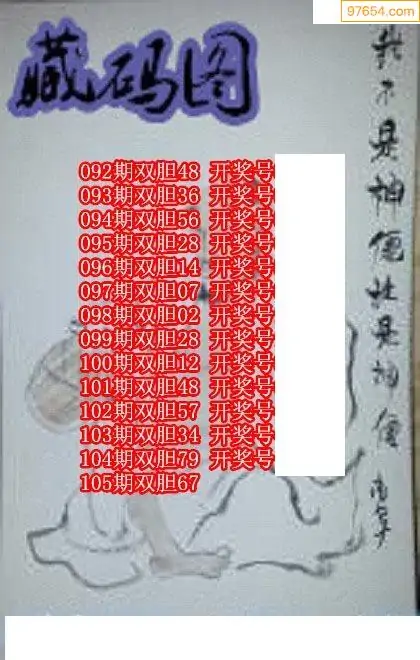 97654.com
藏码图
092期双胆48 开奖号
093期双胆36 开奖号
094期双胆56 开奖号
095期双胆28 开奖号
096期双胆14 开奖号
097期双胆07 开奖号
098期双胆02 开奖号
099期双胆28 开奖号
100期双胆12 开奖号
101期双胆48 开奖号
102期双胆57 开奖号
103期双胆34 开奖号
104期双胆79 开奖号
105期双胆67
我不是神但就是神僧